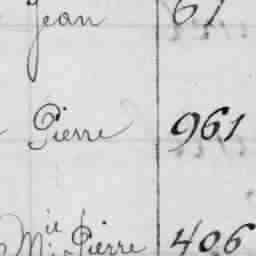 Jean 61
Pierre 961
Mie Pierre 406